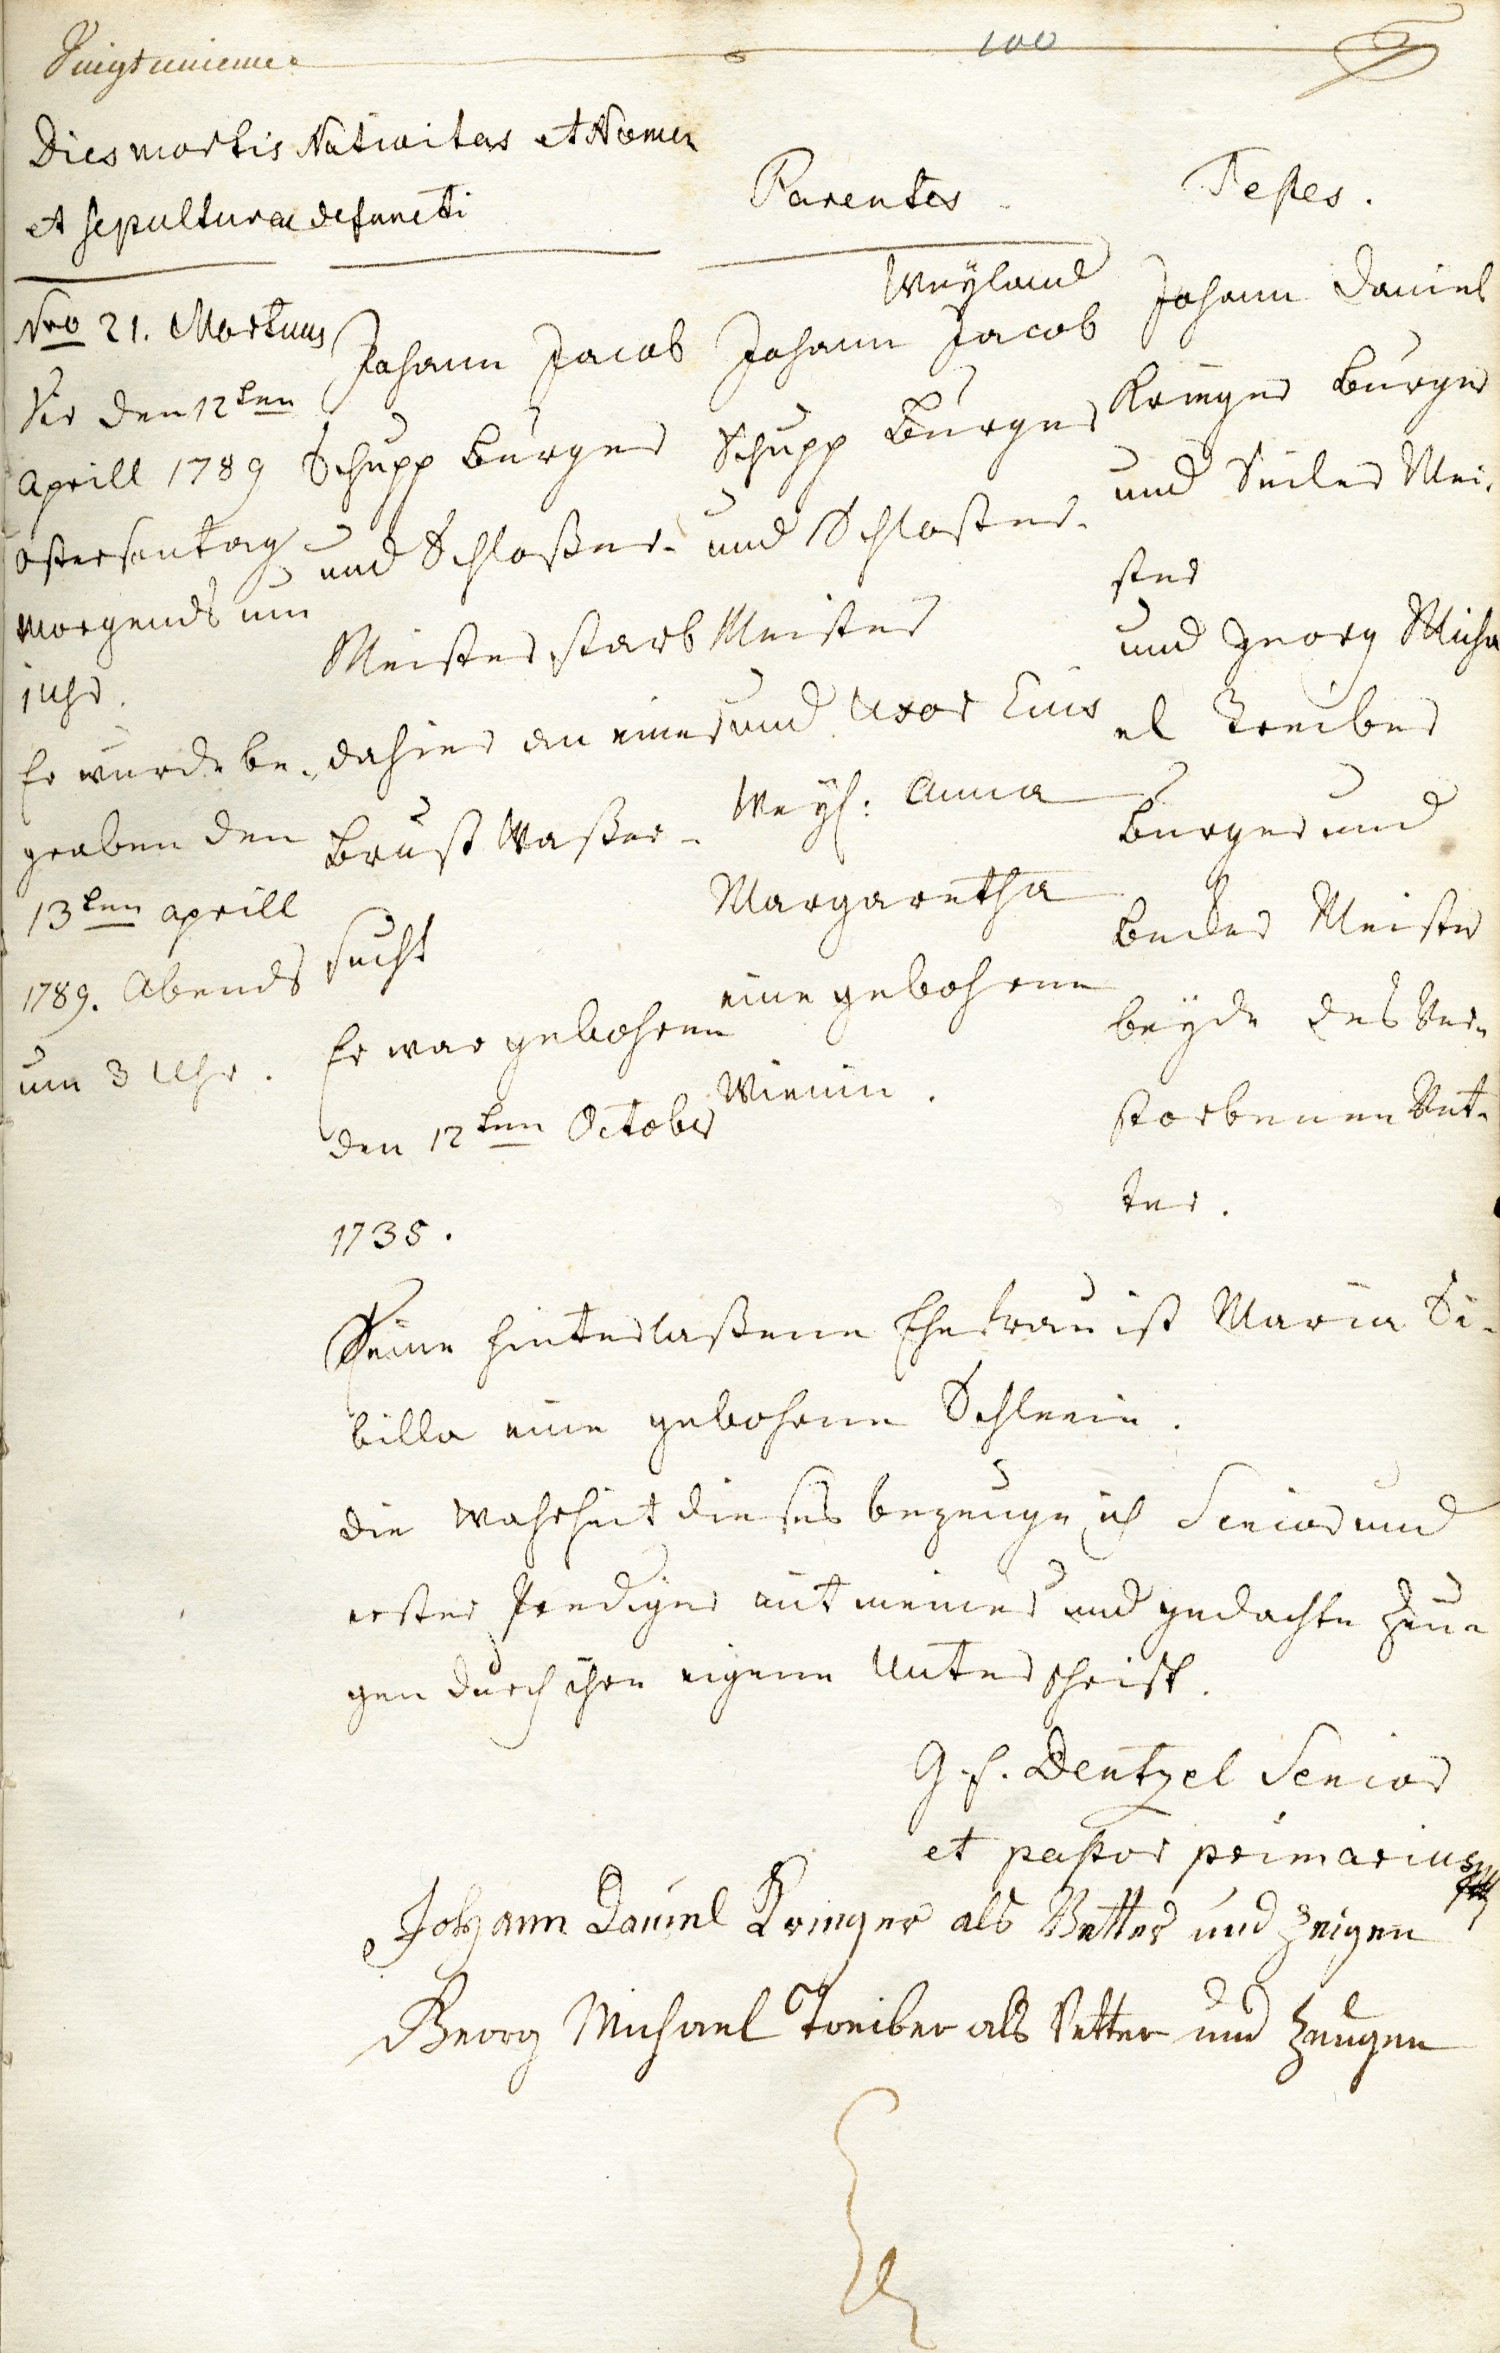 Vingtunieme.
100
Dies mortis Nativitas et Nomen
et sepulturae defuncti
Parentes.
Testes.
Nro 21. Mortuus
Est den 12ten
Aprill 1789
ostersontag
morgends um
1 Uhr.
Er wurde be-
graben den
13ten aprill
1789. Abends
um 3 Uhr.
Johann Jacob
Schupp Burger
und Schloßer-
Meister starb
dahier an einer
Brust Waßer-
sucht
Er war gebohren
den 12ten October
1735.
Weyland
Johann Jacob
Schupp Burger
und Schloßer-
Meister
und Uxor Eius
Weyl: Anna
Margaretha
eine gebohrene
Johann Daniel
Krieger Burger
und Seiler Mei-
ster
und Georg Micha
el Treiber
Burger und
Becker Meister
beyde des Ver-
storbenen Vet-
ter.
Seine hinterlaßene Ehefrau ist Maria Si-
billa eine gebohrene
die Wahrheit dieses bezeuge ich Senior und
erster Prediger mit meiner und gedachte Zeu-
gen durch ihre eigene Unterschrift.
G. F. Dentzel Senior
et pastor primarius
Johann Daniel Krieger als Vetter und Zeigen
Georg Michael Treiber als Vetter und Zeugen